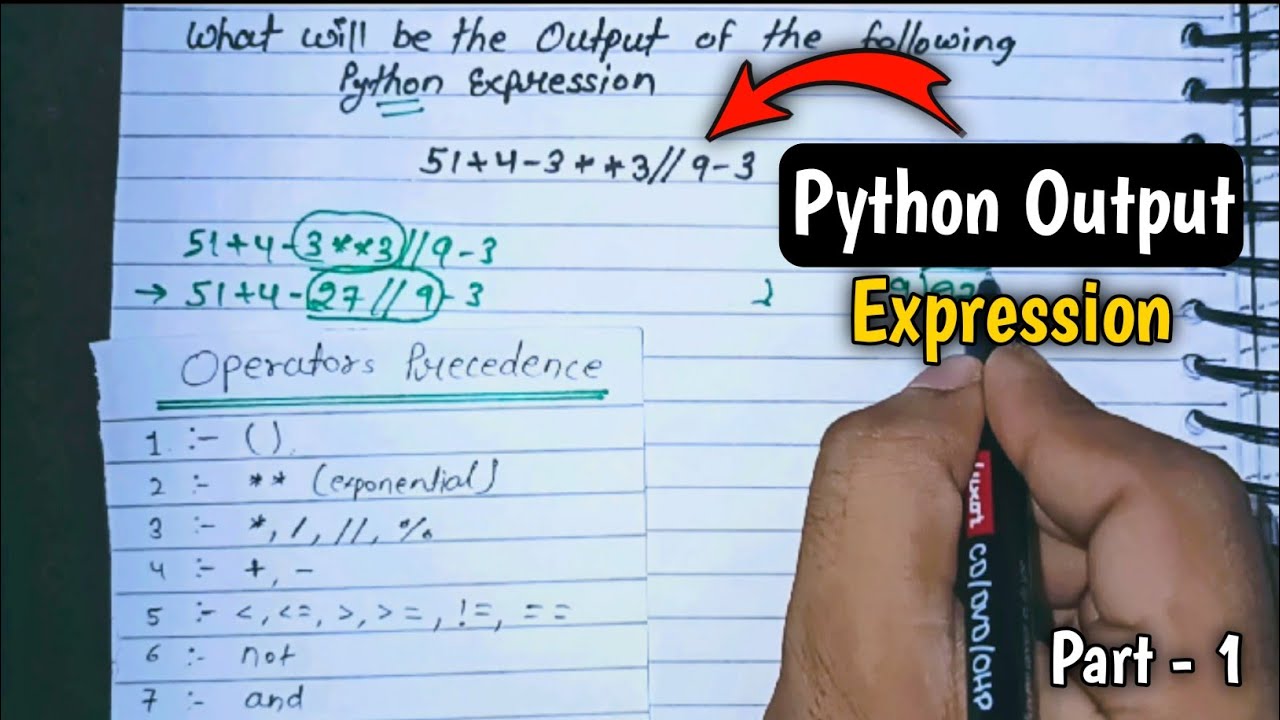 What will be the Output of the following
Python Expression
51+4-3**3//9-3
Python Output
Expression
51+4-3**3//9-3
→ 51+4-27//9-3
Operators Precedence
1 :- ()
2 :- ** (exponential)
3 :- *, /, //, %
4 :- +, -
5 :- <, <=, >, >=, !=, ==
6 :- not
7 :- and
Luxor
CD/DVD/OHP
Part - 1